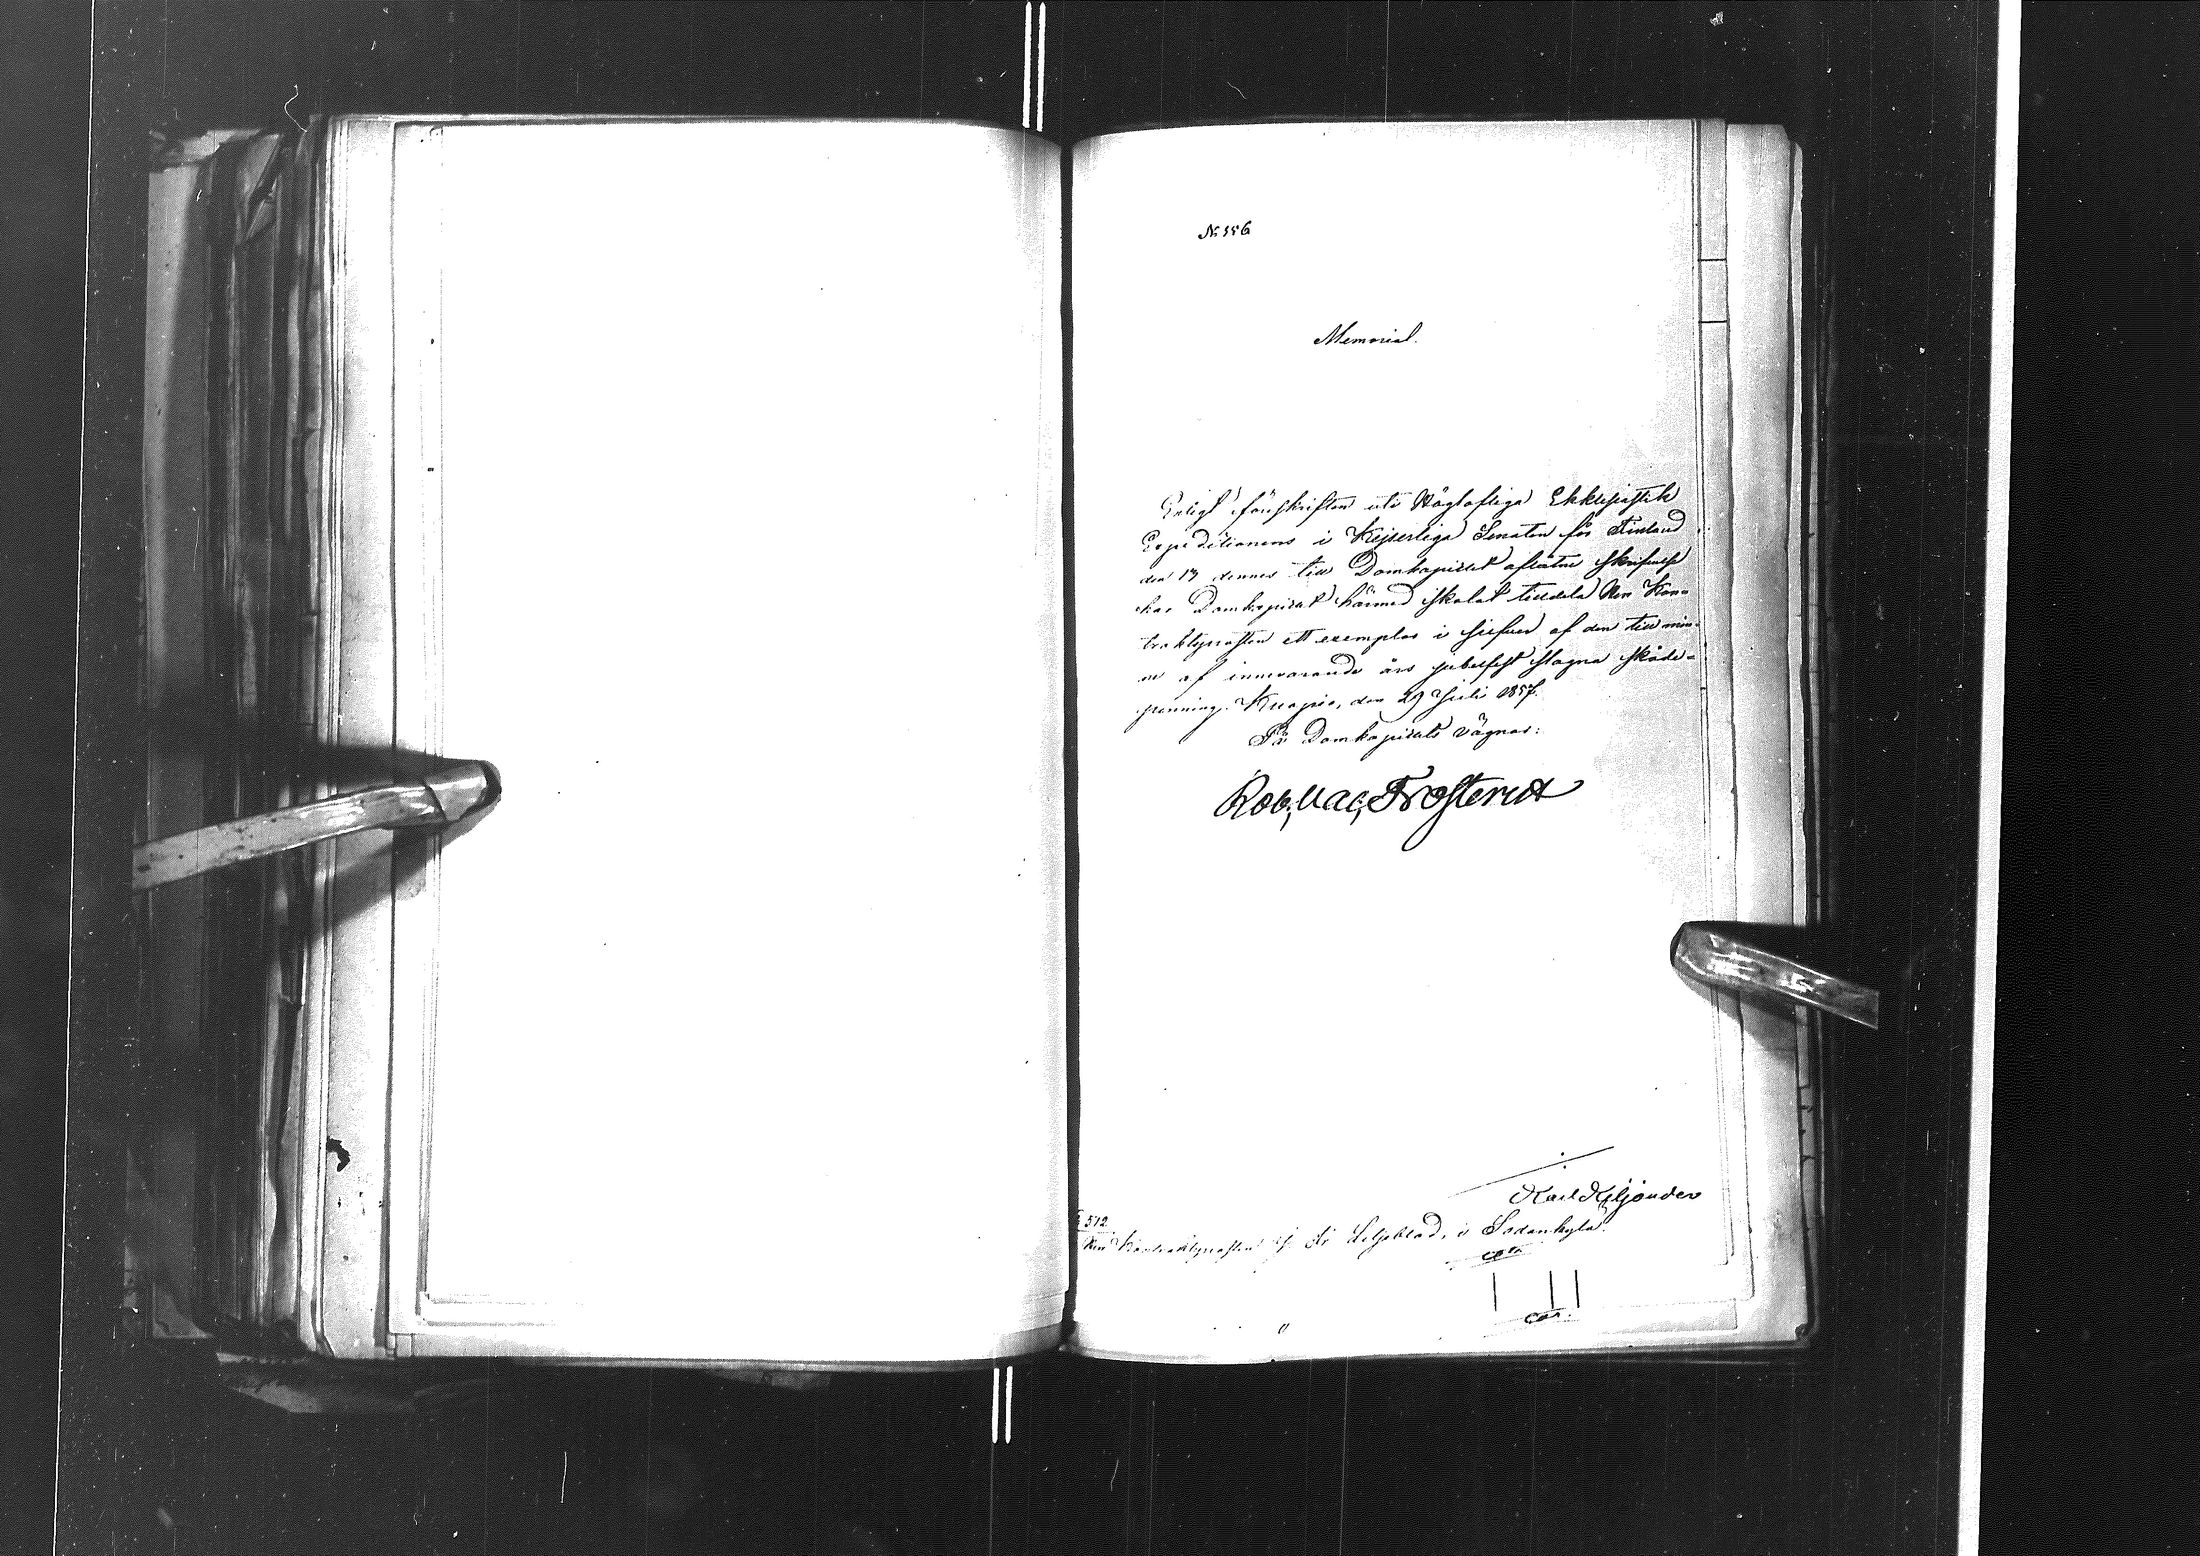 № 556
Memorial.
Enligt föreskriften uti Höglofliga Ekklesiastik
Expeditionens i Kejserliga Senaten för Finland
den 13 dennes till Domkapitlet aflåtne skrifvelse
har Domkapitlet härmed skolat tilldela Herr Kon-
traktsprosten ett exemplar i silfver af den till min-
ne af innevarande års jubelfest slagna skåde-
penning. Kuopio, den 29 Juli 1857.
På Domkapitlets vägnar:
Rob. Val. Frosterus
Karl Kiljander
512
Herr Kontraktsprosten J. Fr. Liljeblad, i Sodankylä.